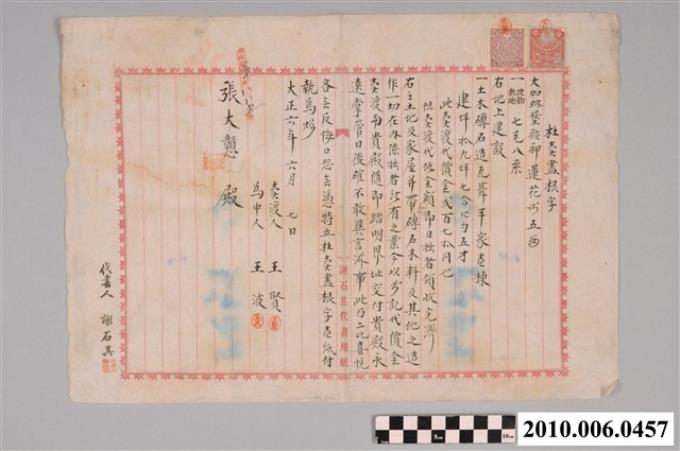 杜賣盡根字
大加蚋堡艋舺蓮花街五番
一建物敷地 七毛八糸
右地上建設
一土木磚石造瓦葺平家壱棟
建坪拾九坪七合〇勺五才
此賣渡代價金弍百七拾円也
但賣渡代價金額即日拙者領收完濟
右之土地及家屋并帶磚石木料及其他之造
作一切在內係拙者所有之業今以前記代價金
賣渡與貴殿隨即踏明界址交付貴殿永
遠掌管日後確不敢異言滋事此乃二比喜悅
各無反悔口恐無憑特立杜賣盡根字壱紙付
執為炤
大正六年六月 七日
賣渡人 王 賢
為中人 王 波
張大憨 殿
代書人 謝石其
謝石其代書用紙
5cm
10cm
2010.006.0457